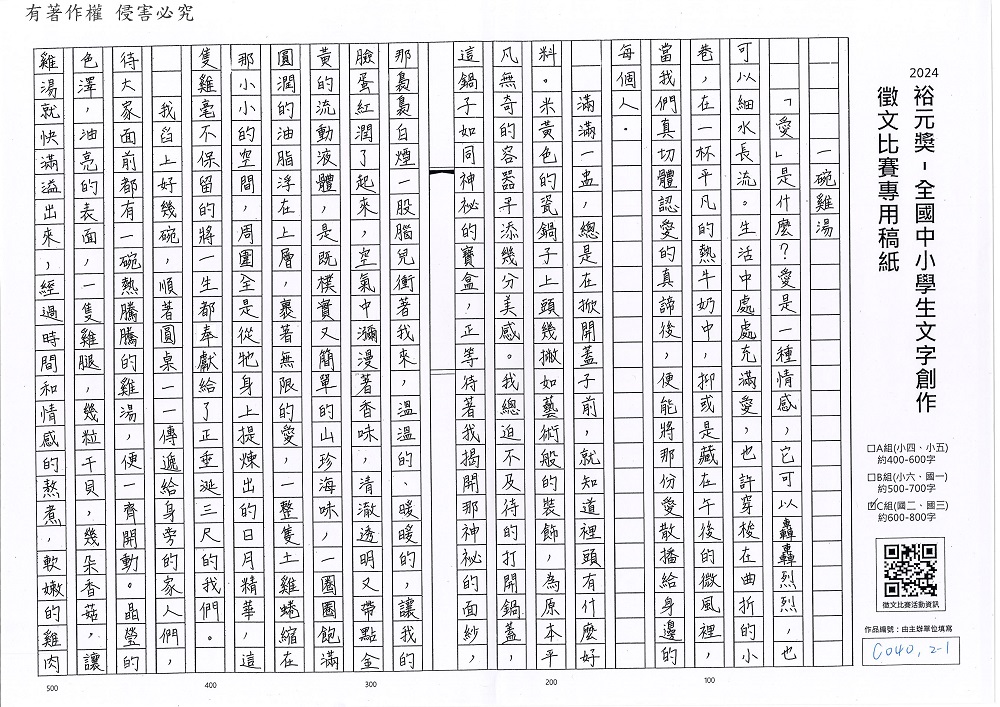 有著作權 侵害必究
2024
裕元獎-全國中小學生文字創作
徵文比賽專用稿紙
□A組(小四、小五)
約400-600字
□B組(小六、國一)
約500-700字
☑C組(國二、國三)
約600-800字
徵文比賽活動資訊
作品編號：由主辦單位填寫
C040, 2-1
一碗雞湯
「愛」是什麼？愛是一種情感，它可以轟轟烈烈，也
可以細水長流。生活中處處充滿愛，也許穿梭在曲折的小
巷，在一杯平凡的熱牛奶中，抑或是藏在午後的微風裡，
當我們真切體認愛的真諦後，便能將那份愛散播給身邊的
每個人．
滿滿一盅，總是在掀開蓋子前，就知道裡頭有什麼好
料。米黃色的瓷鍋子上頭幾撇如藝術般的裝飾，為原本平
凡無奇的容器平添幾分美感。我總迫不及待的打開鍋蓋，
這鍋子如同神祕的寶盒，正等待著我揭開那神祕的面紗，
那裊裊白煙一股腦兒衝著我來，溫溫的、暖暖的，讓我的
臉蛋紅潤了起來，空氣中瀰漫著香味，清澈透明又帶點金
黃的流動液體，是既樸實又簡單的山珍海味，一圈圈飽滿
圓潤的油脂浮在上層，裹著無限的愛，一整隻土雞蜷縮在
那小小的空間，周圍全是從牠身上提煉出的日月精華，這
隻雞毫不保留的將一生都奉獻給了正垂涎三尺的我們。
我舀上好幾碗，順著圓桌一一傳遞給身旁的家人們，
待大家面前都有一碗熱騰騰的雞湯，便一齊開動。晶瑩的
色澤，油亮的表面，一隻雞腿，幾粒干貝，幾朵香菇，讓
雞湯就快滿溢出來，經過時間和情感的熬煮，軟嫩的雞肉
100
200
300
400
500